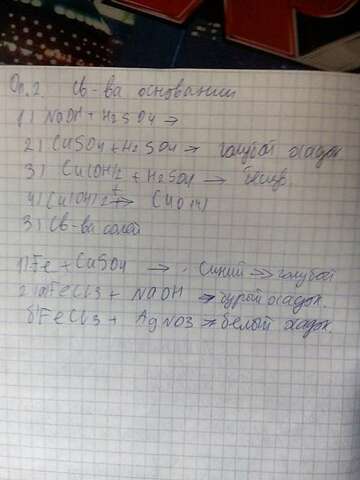 Оп.2. Св-ва оснований
1) NaOH + H2SO4 →
2) CuSO4 + H2SO4 → голубой осадок
3) Cu(OH)2 + H2SO4 →
4) Cu(OH)2 t→ CuO
3) Св-ва солей
1) Fe + CuSO4 → синий → голубой
2) а) FeCl3 + NaOH → бурый осадок.
б) FeCl3 + AgNO3 → белой осадок.